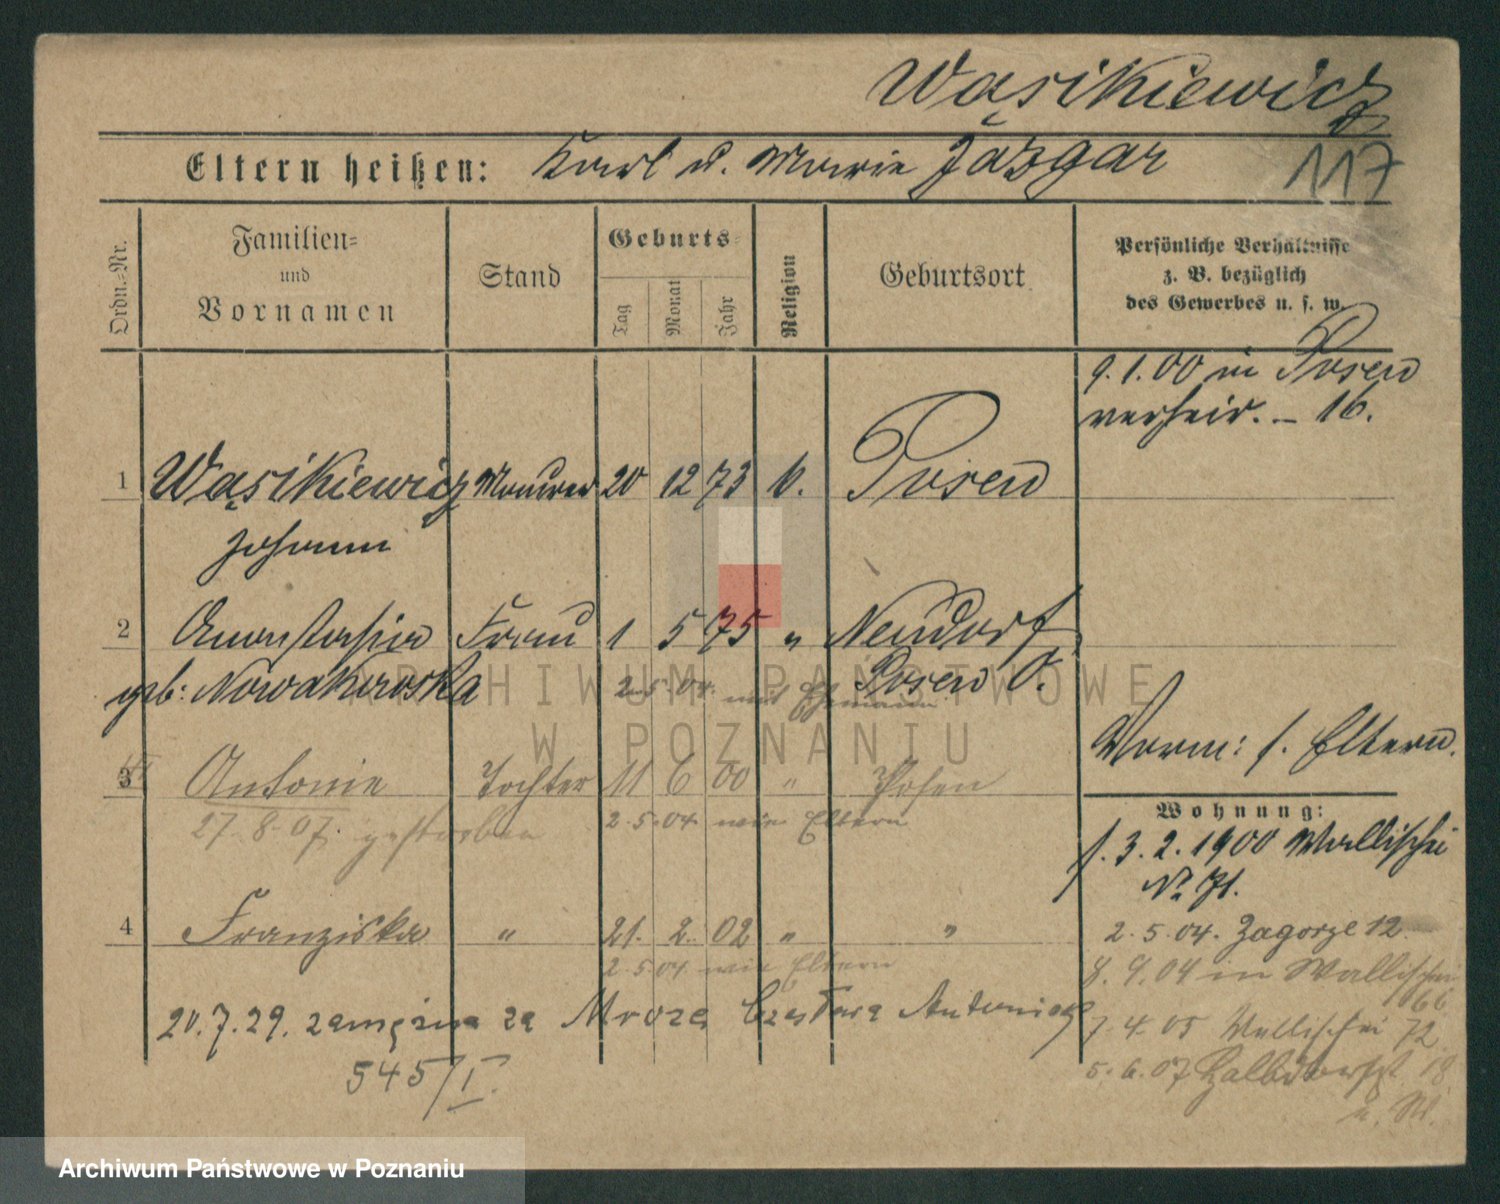 Wąsikiewicz
Eltern heißen: Karl u. Marie Jazgar 117
Ordn.-Nr.
Familien-
und
Vornamen
Stand
Geburts-
Tag
Monat
Jahr
Religion
Geburtsort
Persönliche Verhältnisse
z. B. bezüglich
des Gewerbes u. s. w.
9.1.00 in Posen
verheir. – 16.
1 Wąsikiewicz Maurer 20 12 73 k. Posen
Johann
2 Anastasia Frau 1 5 75 " Neudorf
geb: Nowakowska Posen O.
2.5.04 mit Ehemann
Vorm: s. Eltern.
3 Antonie Tochter 11 6 00 " Posen
27.8.07. gestorben 2.5.04 wie Eltern
Wohnung:
s. 3.2.1900 Wallischei
No 71.
4 Franziska " 21. 2. 02 " "
2.5.04 wie Eltern
2.5.04. Zagorze 12
8.9.04 in Wallischei
66
20.7.29. zamężna za Mroza Czesława Antoniego
7.4.05 Wallischei 72
545/I.
5.6.07 18
ARCHIWUM PAŃSTWOWE
W POZNANIU
Archiwum Państwowe w Poznaniu